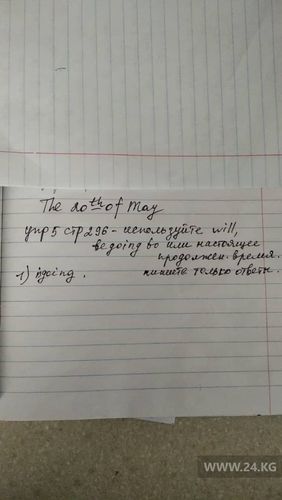 The 20th of May
упр 5 стр 296 - используйте will,
be going to или настоящее
продолжен. время.
1) igoing. пишите только ответы.
WWW.24.KG